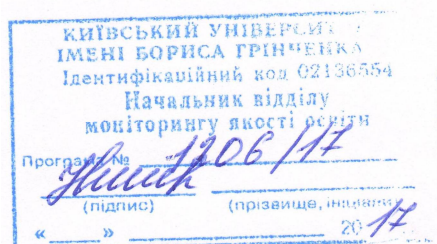 КИЇВСЬКИЙ УНІВЕРСИТЕТ
ІМЕНІ БОРИСА ГРІНЧЕНКА
Ідентифікаційний код 02136554
Начальник відділу
моніторингу якості освіти
Програма № 1206/17
(підпис) (прізвище, ініціали)
« » 2017